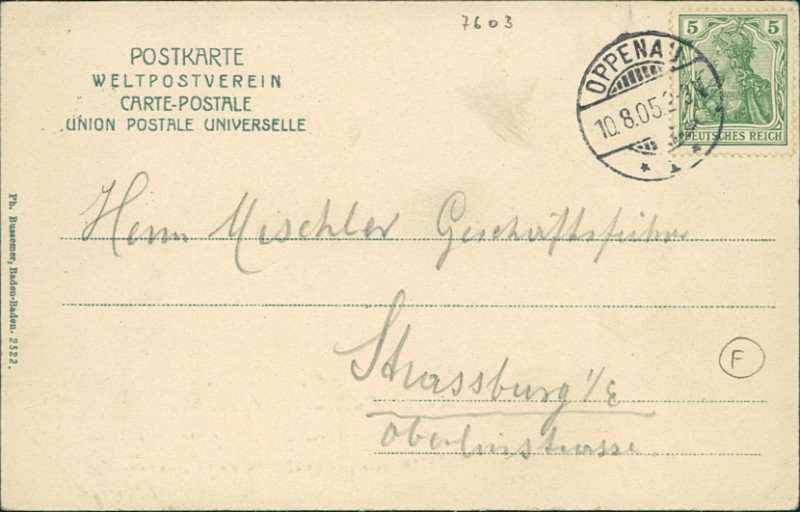 7603
POSTKARTE
WELTPOSTVEREIN
CARTE-POSTALE
UNION POSTALE UNIVERSELLE
5 5
DEUTSCHES REICH
OPPENAU
10.8.05. 2-3N.
Herrn Mischler Geschäftsführer
Strassburg i/E
Oberlinstrasse
F
Ph. Bussemer, Baden-Baden. 2522.